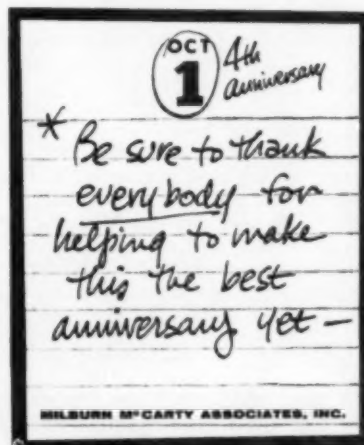 OCT 4th
1 anniversary
* Be sure to thank
everybody for
helping to make
this the best
anniversary yet —
MILBURN McCARTY ASSOCIATES, INC.